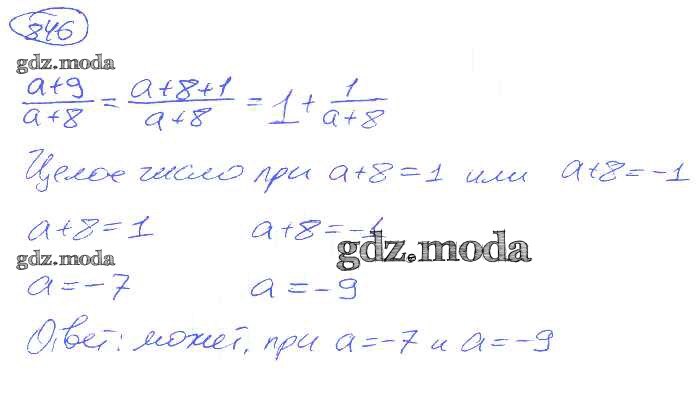 846
gdz.moda
a+9/a+8 = a+8+1/a+8 = 1 + 1/a+8
Целое число при a+8=1 или a+8=-1
a+8=1 a+8=-1
gdz.moda gdz.moda
a=-7 a=-9
Ответ: может, при a=-7 и a=-9